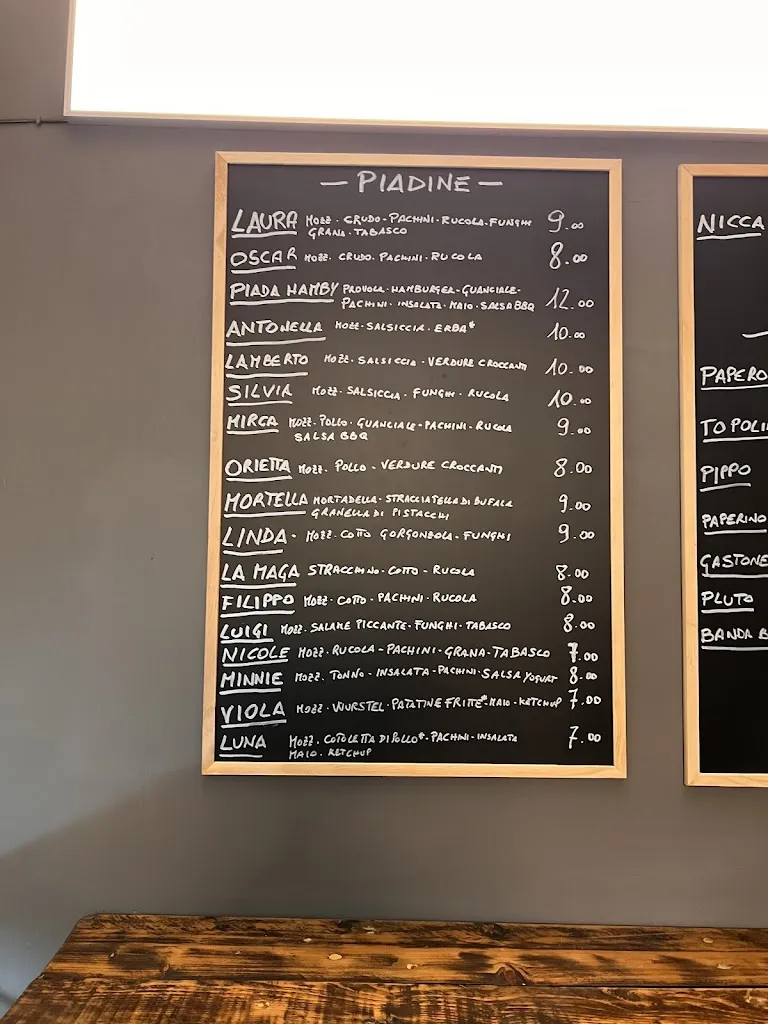 — PIADINE —
LAURA MOZZ. CRUDO - PACHINI - RUCOLA - FUNGHI 9.00
GRANA - TABASCO
OSCAR MOZZ. CRUDO. PACHINI. RUCOLA 8.00
PIADA HAMBY PROVOLA - HAMBURGER - GUANCIALE -
PACHINI - INSALATA - MAIO - SALSA BBQ 12.00
ANTONELLA MOZZ - SALSICCIA - ERBA* 10.00
LAMBERTO MOZZ. SALSICCIA - VERDURE CROCCANTI 10.00
SILVIA MOZZ - SALSICCIA - FUNGHI - RUCOLA 10.00
MIRCA MOZZ. POLLO - GUANCIALE - PACHINI - RUCOLA 9.00
SALSA BBQ
ORIETTA MOZZ. POLLO - VERDURE CROCCANTI 8.00
MORTELLA MORTADELLA - STRACCIATELLA DI BUFALA 9.00
GRANELLA DI PISTACCHI
LINDA - MOZZ. COTTO GORGONZOLA - FUNGHI 9.00
LA MAGA STRACCHINO - COTTO - RUCOLA 8.00
FILIPPO MOZZ - COTTO - PACHINI - RUCOLA 8.00
LUIGI MOZZ. SALAME PICCANTE - FUNGHI - TABASCO 8.00
NICOLE MOZZ. RUCOLA - PACHINI - GRANA - TABASCO 7.00
MINNIE MOZZ. TONNO - INSALATA - PACHINI - SALSA YOGURT 8.00
VIOLA MOZZ - WURSTEL - PATATINE FRITTE* - MAIO - KETCHUP 7.00
LUNA MOZZ. COTOLETTA DI POLLO* - PACHINI - INSALATA 7.00
MAIO. KETCHUP
NICCA
PAPERO
TOPOLI
PIPPO
PAPERINO
GASTONE
PLUTO
BANDA B